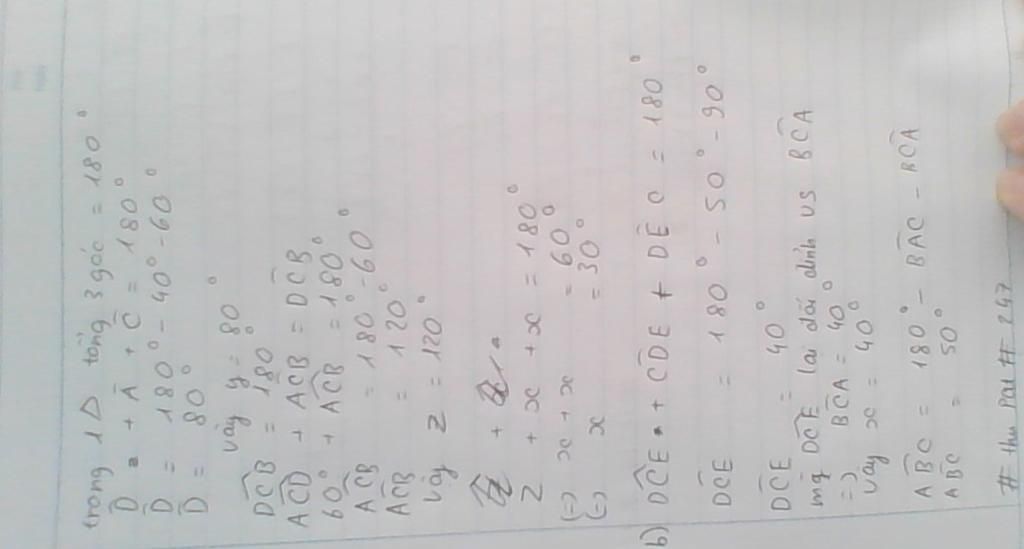 trong 1 Δ tổng 3 góc = 180°
D̂ + Â + Ĉ = 180°
D̂ = 180° - 40° - 60°
D̂ = 80°
vậy y = 80°
DĈB = 180°
AĈD + AĈB = DĈB
60° + AĈB = 180°
AĈB = 180° - 60°
AĈB = 120°
vậy z = 120°
z + x + x = 180°
(=) x + x = 60°
(=) x = 30°
b) DĈE + CD̂E + DÊC = 180°
DĈE = 180° - 50° - 90°
DĈE = 40°
mà DĈE lại đối đỉnh vs BĈA
=) BĈA = 40°
vậy x = 40°
AB̂C = 180° - BÂC - BĈA
AB̂C = 50°